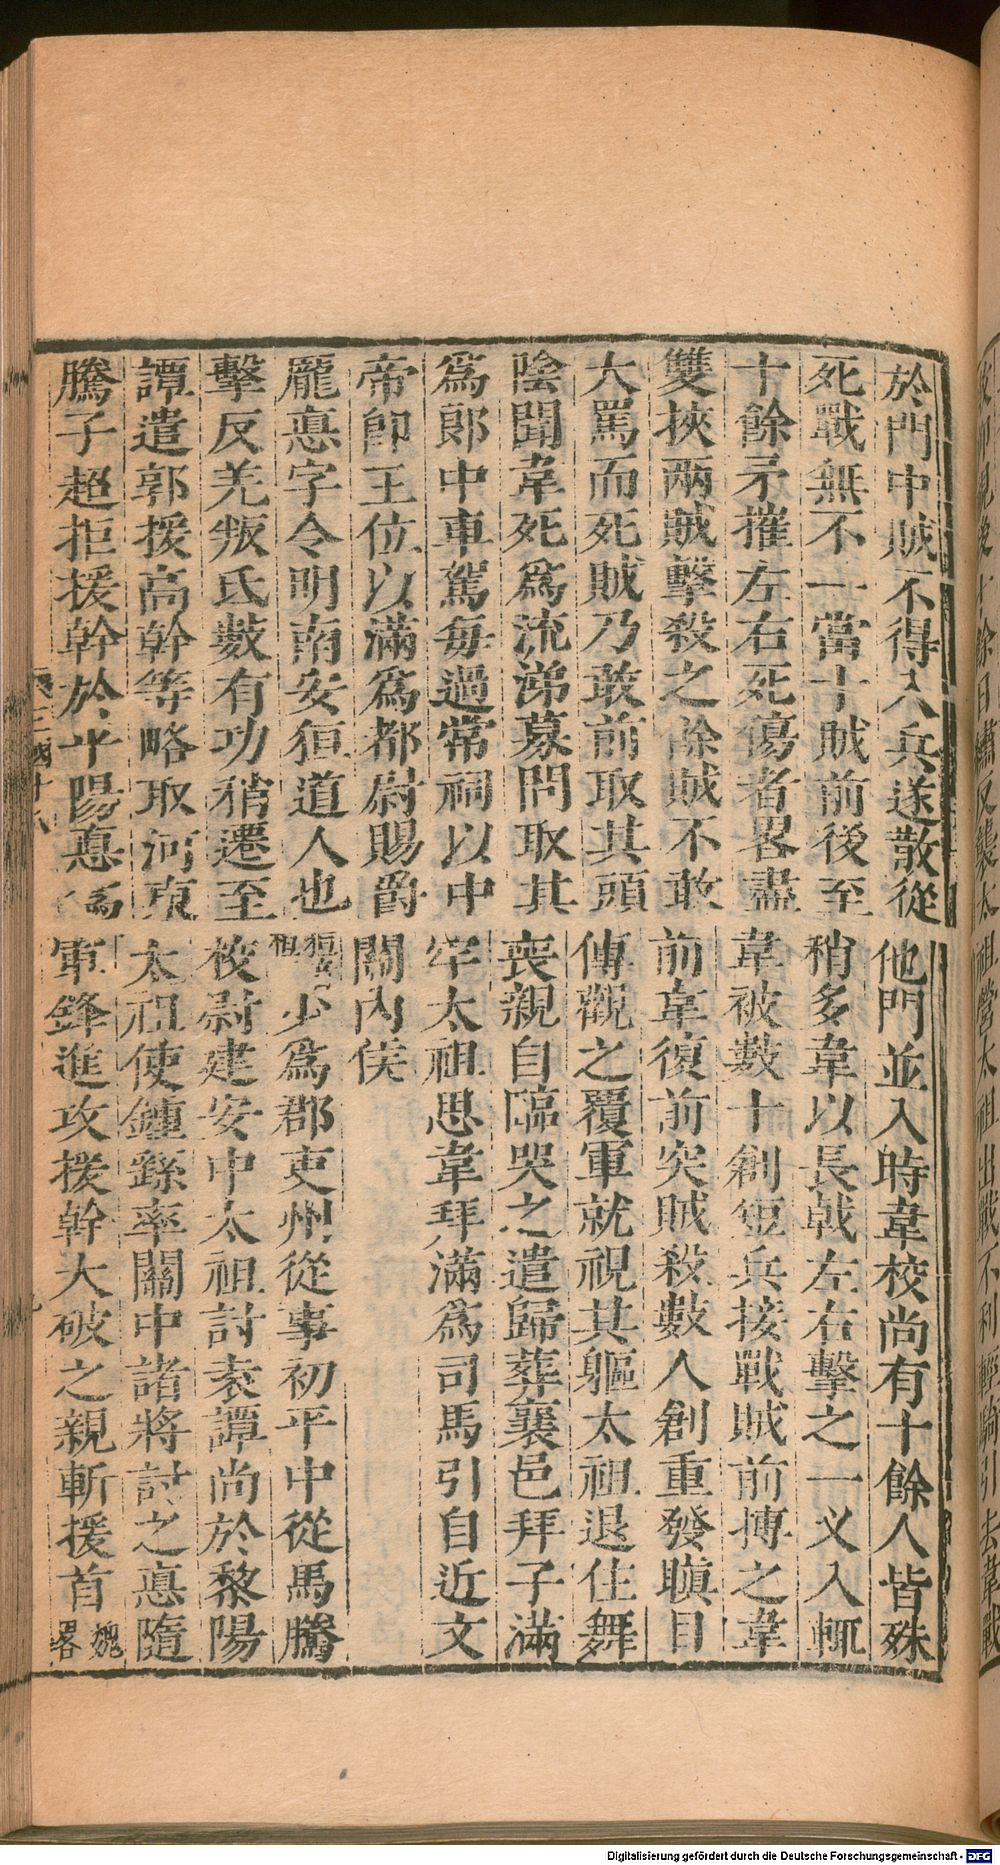 於門中賊不得入兵遂散從他門並入時韋校尚有十餘人皆殊
死戰無不一當十賊前後至稍多韋以長戟左右擊之一义入輒
十餘矛摧左右死傷者畧盡韋被數十創短兵接戰賊前搏之韋
雙挾兩賊擊殺之餘賊不敢前韋復前突賊殺數人創重發瞋目
大罵而死賊乃敢前取其頭傳觀之覆軍就視其軀太祖退住舞
陰聞韋死爲流涕募間取其喪親自臨哭之遣歸葬襄邑拜子滿
爲郎中車駕每過常祠以中牢太祖思韋拜滿爲司馬引自近文
帝卽王位以滿爲都尉賜爵關內侯
龐悳字令明南安狟道人也狟少爲郡吏州從事初平中從馬騰
擊反羌叛氐數有功稍遷至校尉建安中太祖討袁譚尚於黎陽
譚遣郭援高幹等略取河東太祖使鍾繇率關中諸將討之悳隨
騰子超拒援幹於平陽悳爲軍鋒進攻援幹大破之親斬援首魏畧
三國十八
Digitalisierung gefördert durch die Deutsche Forschungsgemeinschaft - DFG